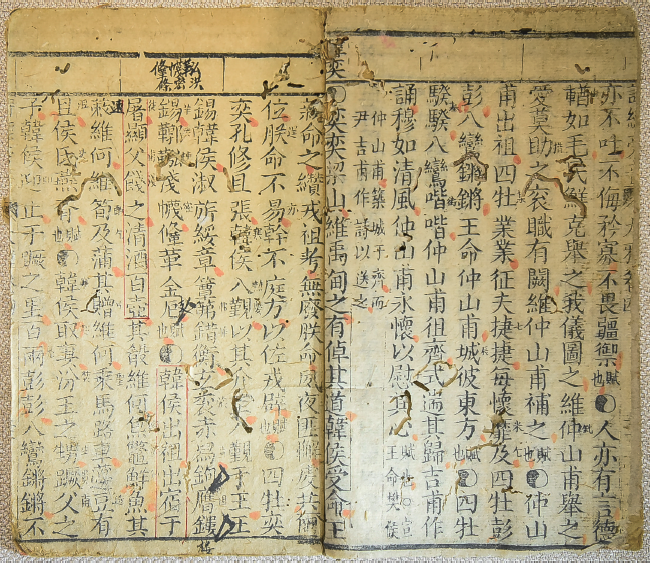 亦不吐不侮矜寡不畏彊禦賦也○人亦有言德
輶如毛民鮮克舉之我儀圖之維仲山甫舉之
愛莫助之袞職有闕維仲山甫補之賦也○仲山
甫出祖四牡業業征夫捷捷每懷靡及四牡彭
彭八鸞鏘鏘王命仲山甫城彼東方賦也○四牡
騤騤八鸞喈喈仲山甫徂齊式遄其歸吉甫作
誦穆如清風仲山甫永懷以慰其心賦也○宣王命樊侯
仲山甫築城于齊而
尹吉甫作詩以送之
韓奕○奕奕梁山維禹甸之有倬其道韓侯受命王
親命之纘戎祖考無廢朕命夙夜匪解虔共爾
位朕命不易榦不庭方以佐戎辟賦也○四牡奕
奕孔修且張韓侯入覲以其介圭入覲于王王
錫韓侯淑旂綏章簟茀錯衡玄袞赤舄鉤膺鏤
錫鞹鞃淺幭鞗革金厄賦也○韓侯出祖出宿于
屠顯父餞之清酒百壺其殽維何炰鼈鮮魚其
蔌維何維筍及蒲其贈維何乘馬路車籩豆有
且侯氏燕胥賦也○韓侯取妻汾王之甥蹶父之
子韓侯迎止于蹶之里百兩彭彭八鸞鏘鏘不